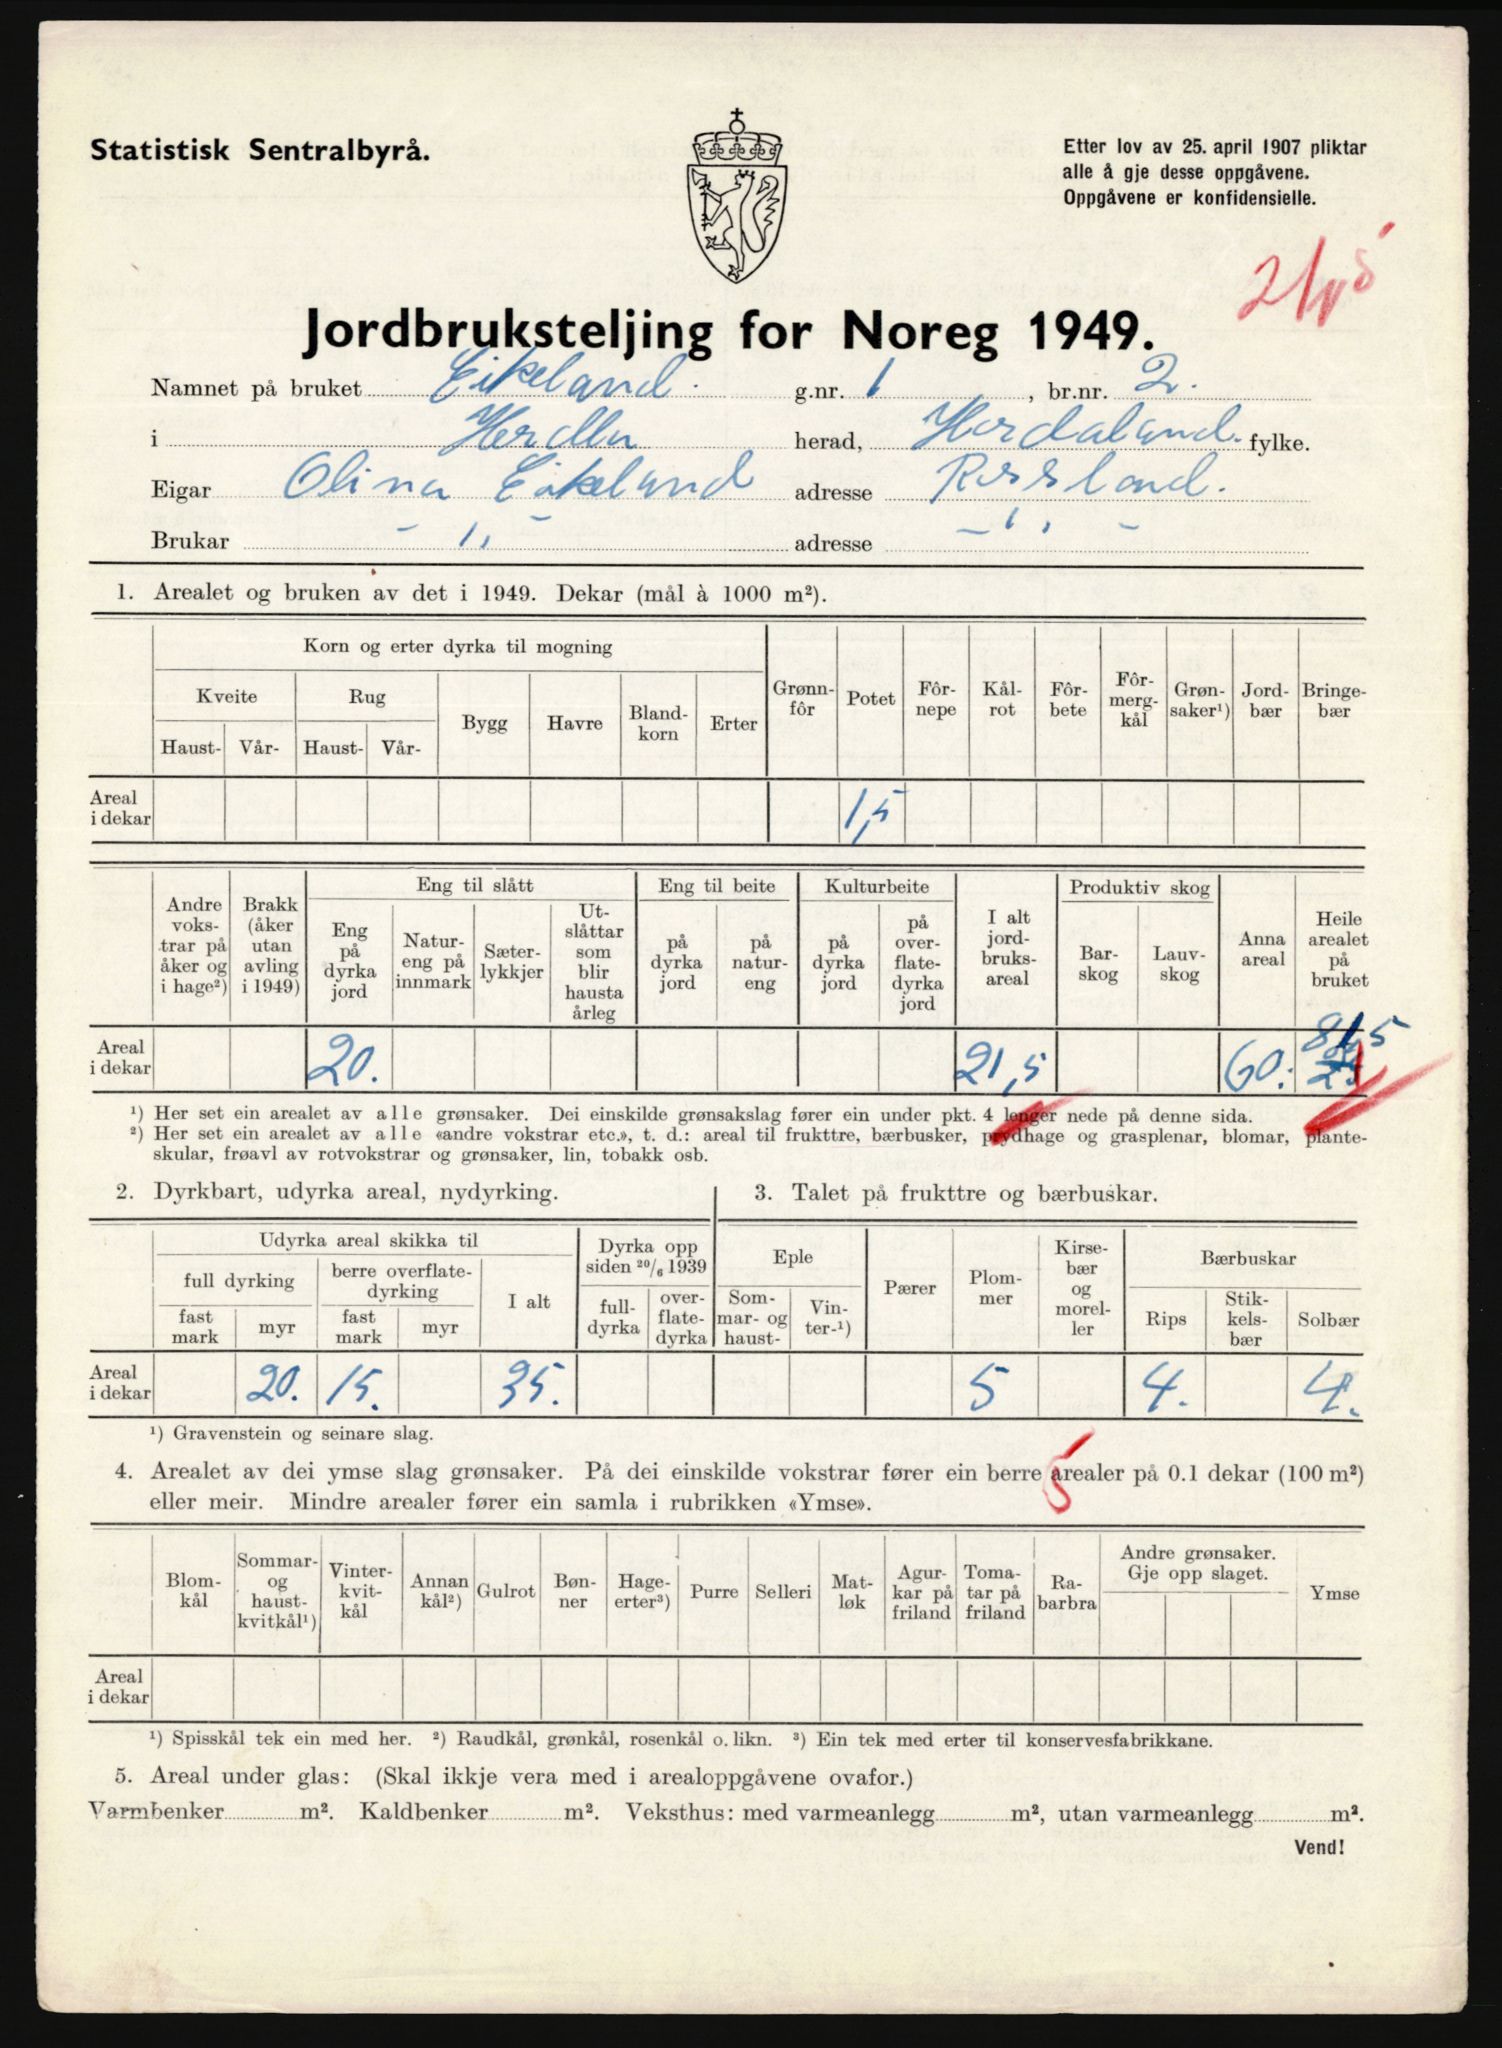 Statistisk Sentralbyrå.
Etter lov av 25. april 1907 pliktar
alle å gje desse oppgåvene.
Oppgåvene er konfidensielle.
Jordbruksteljing for Noreg 1949.
Namnet på bruket Eikeland. g.nr. 1, br.nr. 2.
i Herdla herad, Hordaland. fylke.
Eigar Olina Eikeland adresse Rossland.
Brukar – " – adresse – " –
1. Arealet og bruken av det i 1949. Dekar (mål à 1000 m²).
Korn og erter dyrka til mogning
Kveite Rug Bygg Havre Blandkorn Erter Grønnfôr Potet Fôrnepe Kålrot Fôrbete Fôrmergkål Grønsaker¹) Jordbær Bringebær
Haust- Vår- Haust- Vår-
Areal i dekar 1,5
Andre vokstrar på åker og i hage²) Brakk (åker utan avling i 1949) Eng til slått Eng til beite Kulturbeite I alt jordbruksareal Produktiv skog Anna areal Heile arealet på bruket
Eng på dyrka jord Natureng på innmark Sæterlykkjer Utslåttar som blir hausta årleg på dyrka jord på natureng på dyrka jord på overflatedyrka jord Barskog Lauvskog
Areal i dekar 20. 21,5 60. 81,5
¹) Her set ein arealet av alle grønsaker. Dei einskilde grønsakslag fører ein under pkt. 4 lenger nede på denne sida.
²) Her set ein arealet av alle «andre vokstrar etc.», t. d.: areal til frukttre, bærbusker, prydhage og grasplenar, blomar, planteskular, frøavl av rotvokstrar og grønsaker, lin, tobakk osb.
2. Dyrkbart, udyrka areal, nydyrking.
3. Talet på frukttre og bærbuskar.
Udyrka areal skikka til Dyrka opp siden 20/6 1939 Eple Pærer Plommer Kirsebær og moreller Bærbuskar
full dyrking berre overflatedyrking I alt fulldyrka overflatedyrka Sommar- og haust- Vinter-¹) Rips Stikkelsbær Solbær
fast mark myr fast mark myr
Areal i dekar 20. 15. 35. 5 4. 4.
¹) Gravenstein og seinare slag.
5
4. Arealet av dei ymse slag grønsaker. På dei einskilde vokstrar fører ein berre arealer på 0.1 dekar (100 m²)
eller meir. Mindre arealer fører ein samla i rubrikken «Ymse».
Blomkål Sommar- og haustkvitkål¹) Vinterkvitkål Annan kål²) Gulrot Bønner Hageerter³) Purre Selleri Matløk Agurkar på friland Tomatar på friland Rabarbra Andre grønsaker. Gje opp slaget. Ymse
Areal i dekar
¹) Spisskål tek ein med her. ²) Raudkål, grønkål, rosenkål o. likn. ³) Ein tek med erter til konservesfabrikkane.
5. Areal under glas: (Skal ikkje vera med i arealoppgåvene ovafor.)
Varmbenker m². Kaldbenker m². Veksthus: med varmeanlegg m², utan varmeanlegg m².
Vend!